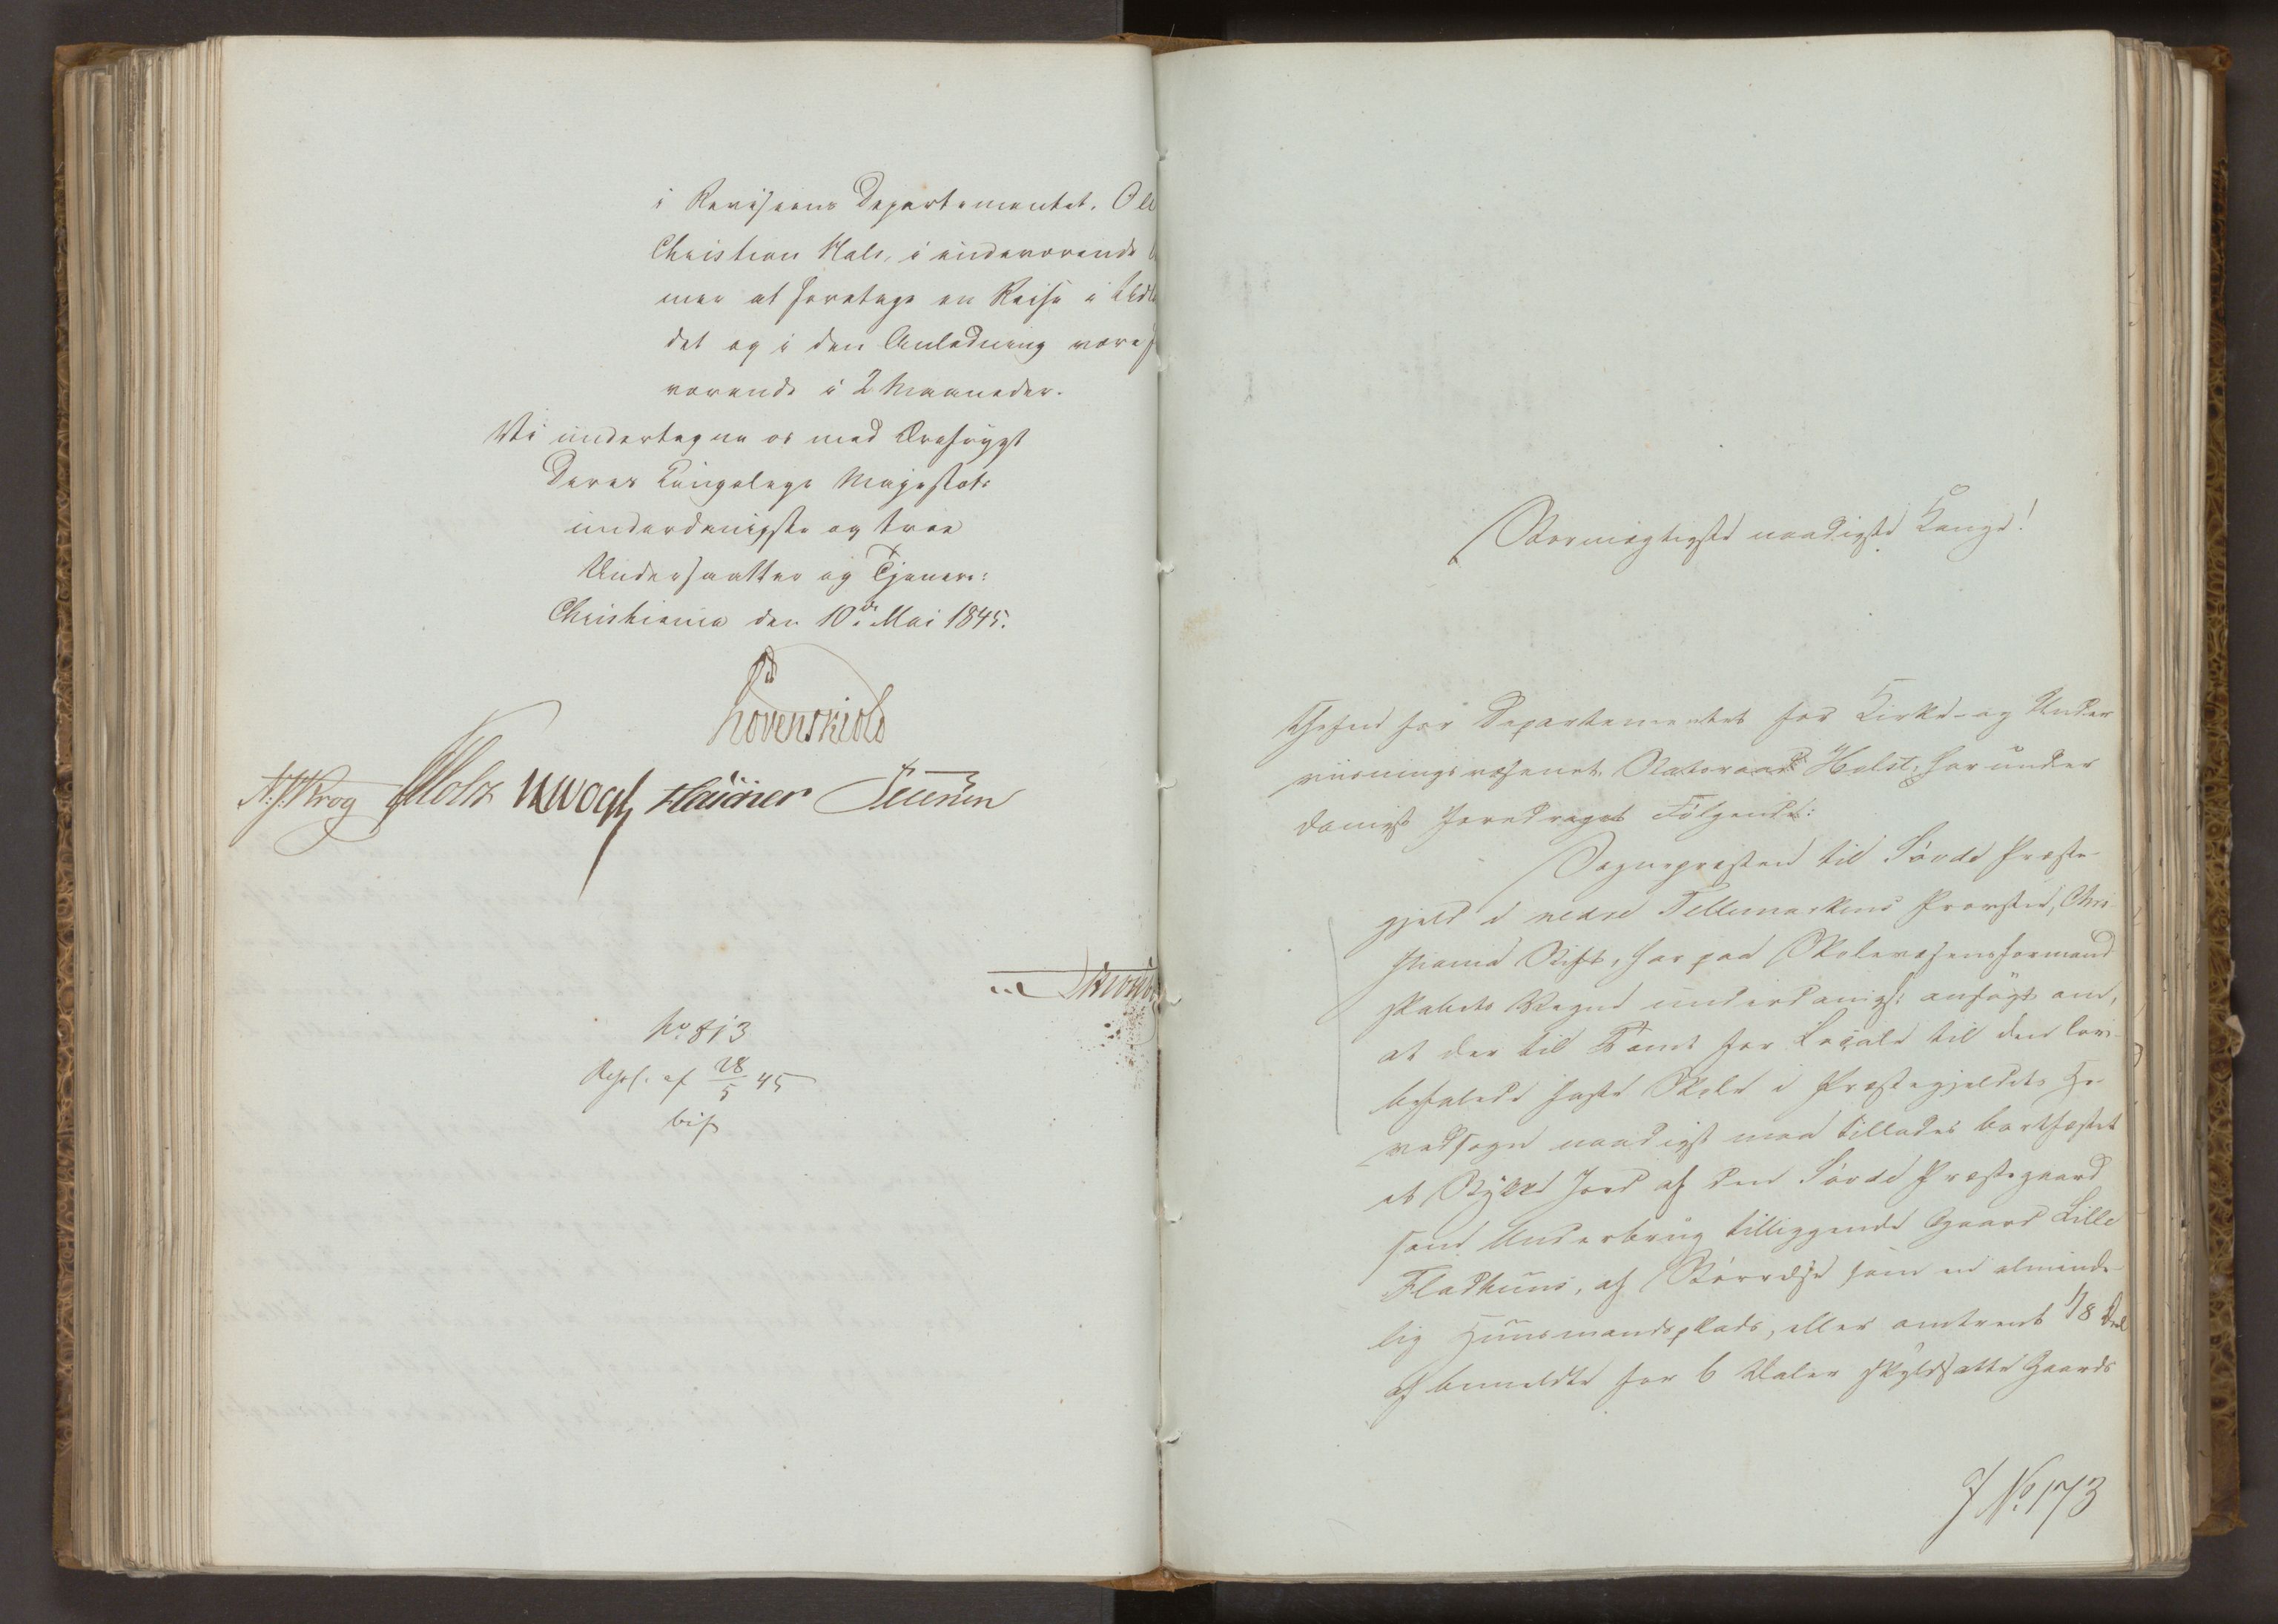 i Revisions Departementet. Ole
Christian Hals, i indeværende
mer at foretage en Reise i Udl
det og i den Anledning være f
værende i 2 Maaneder.
Vi undertegne os med Ærefrygt
Deres Kongelige Majestæts
underdanigste og troe
Undersaatter og Tjenere:
Christiania den 10de Mai 1845.
Løvenskiold
N. J. Krog Holst Vogt
No 813
Resol. af 28/5 45
bif
Stormægtigste naadigste Konge!
Chefen for Departementet for Kirke- og Under
viisningsvæsenet, Statsraad Holst, har under
danigst foredraget Følgende:
Sognepræsten til Sørde Præste-
gjeld i nedre Tellemarkens Provstie, Chri-
stiania Stift, har paa Skolevæsensformand
skabets Vegne underdanigst ansøgt om,
at der til Tomt for Locale til den lov-
befalede faste Skole i Præstegjeldets Ho-
vedsogn naadigst maa tillades bortfæstet
et Stykke Jord af den Sørde Præstegaard
som Underbrug tilliggende Gaard Lille
Fladhuus, af Størrelse som en alminde-
lig Huusmandsplads, eller omtrent 1/8 Deel
af bemeldte for 6 Daler skyldsatte Gaards
J No 173